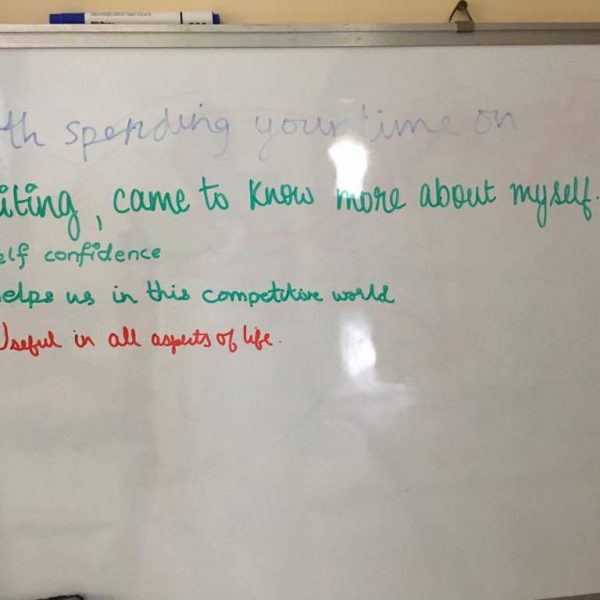 th spending your time on
iting, came to know more about myself.
elf confidence
helps us in this competitive world
Useful in all aspects of life.